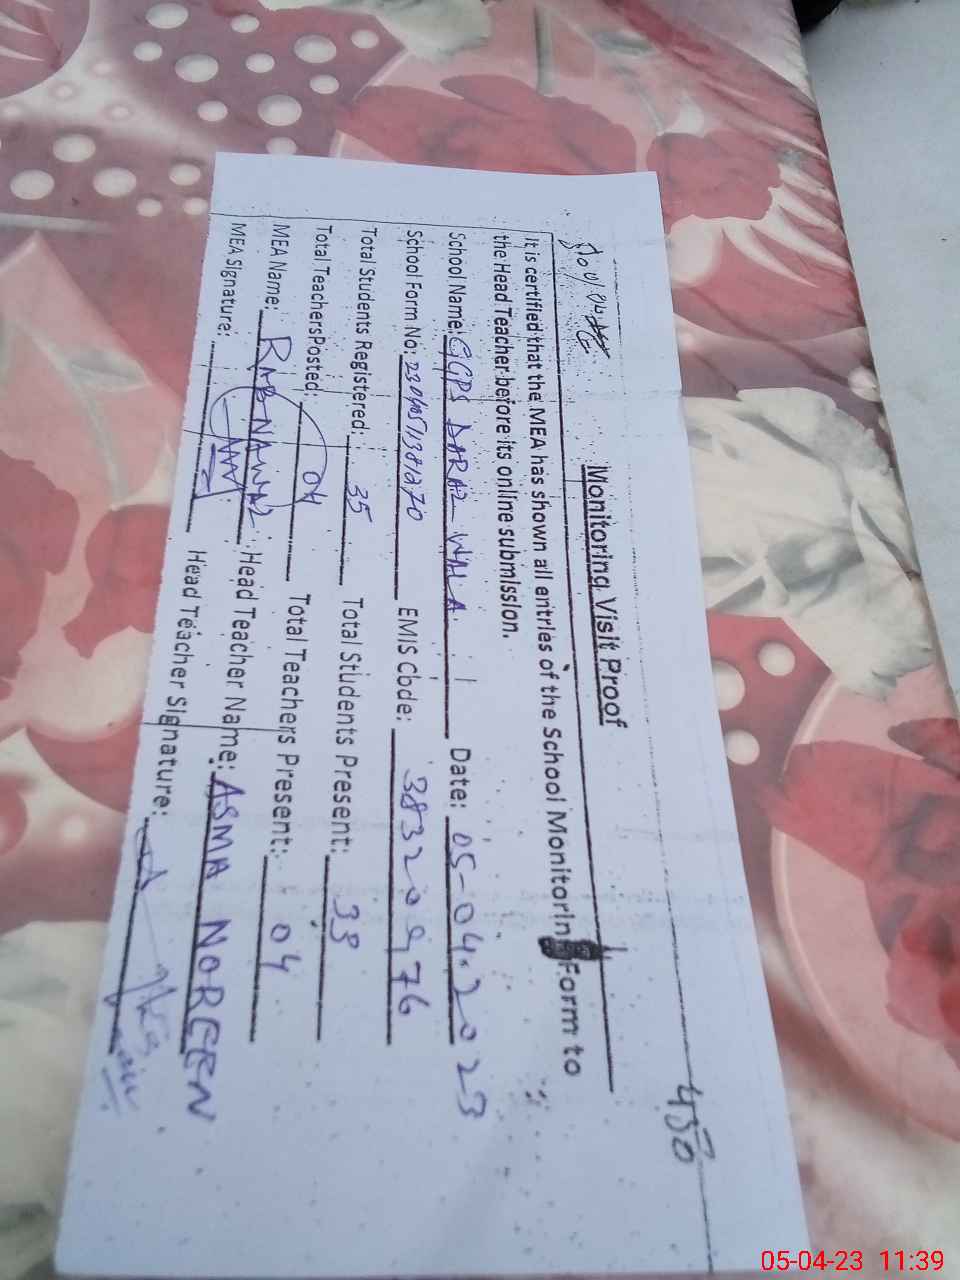 430
Monitoring Visit Proof
It is certified that the MEA has shown all entries of the School Monitorin Form to
the Head Teacher before its online submission.
School Name: GGPS DARAZ WALA Date: 05-04-2023
School Form No: EMIS Code: 38320976
Total Students Registered: 35 Total Students Present: 33
Total Teachers Posted: 04 Total Teachers Present: 04
MEA Name: RAB NAWAZ Head Teacher Name: ASMA NOREEN
MEA Signature: Head Teacher Signature:
05-04-23 11:39